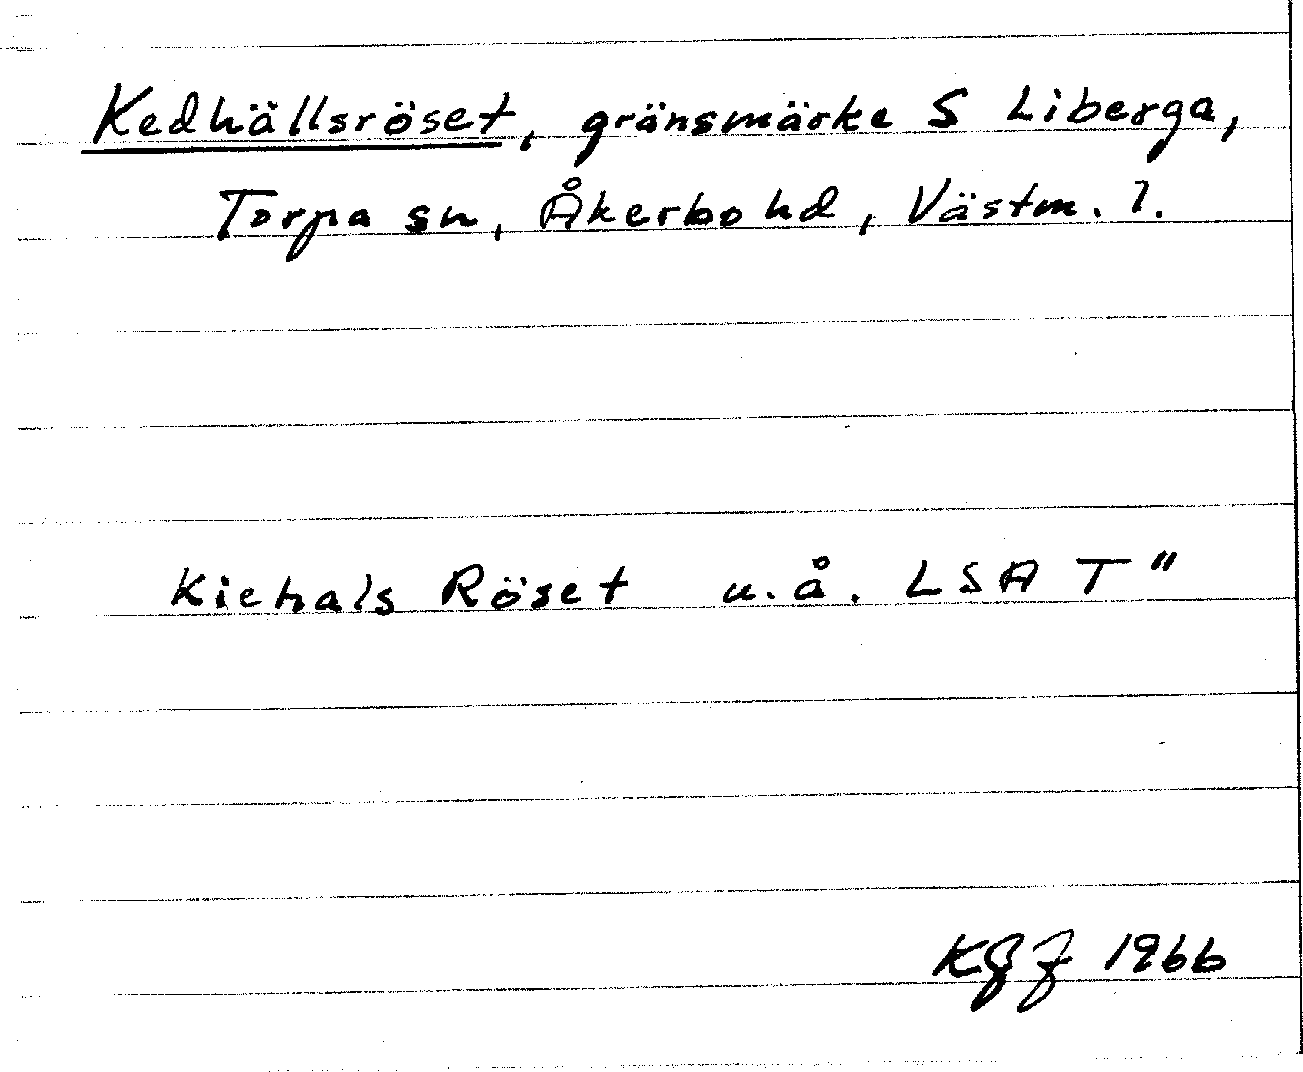 Kedhällsröset, gränsmärke S Liberga,
Torpa sn, Åkerbo hd, Västm. l.
Kiehals Röset u.å. LSA T"
KGJ 1966